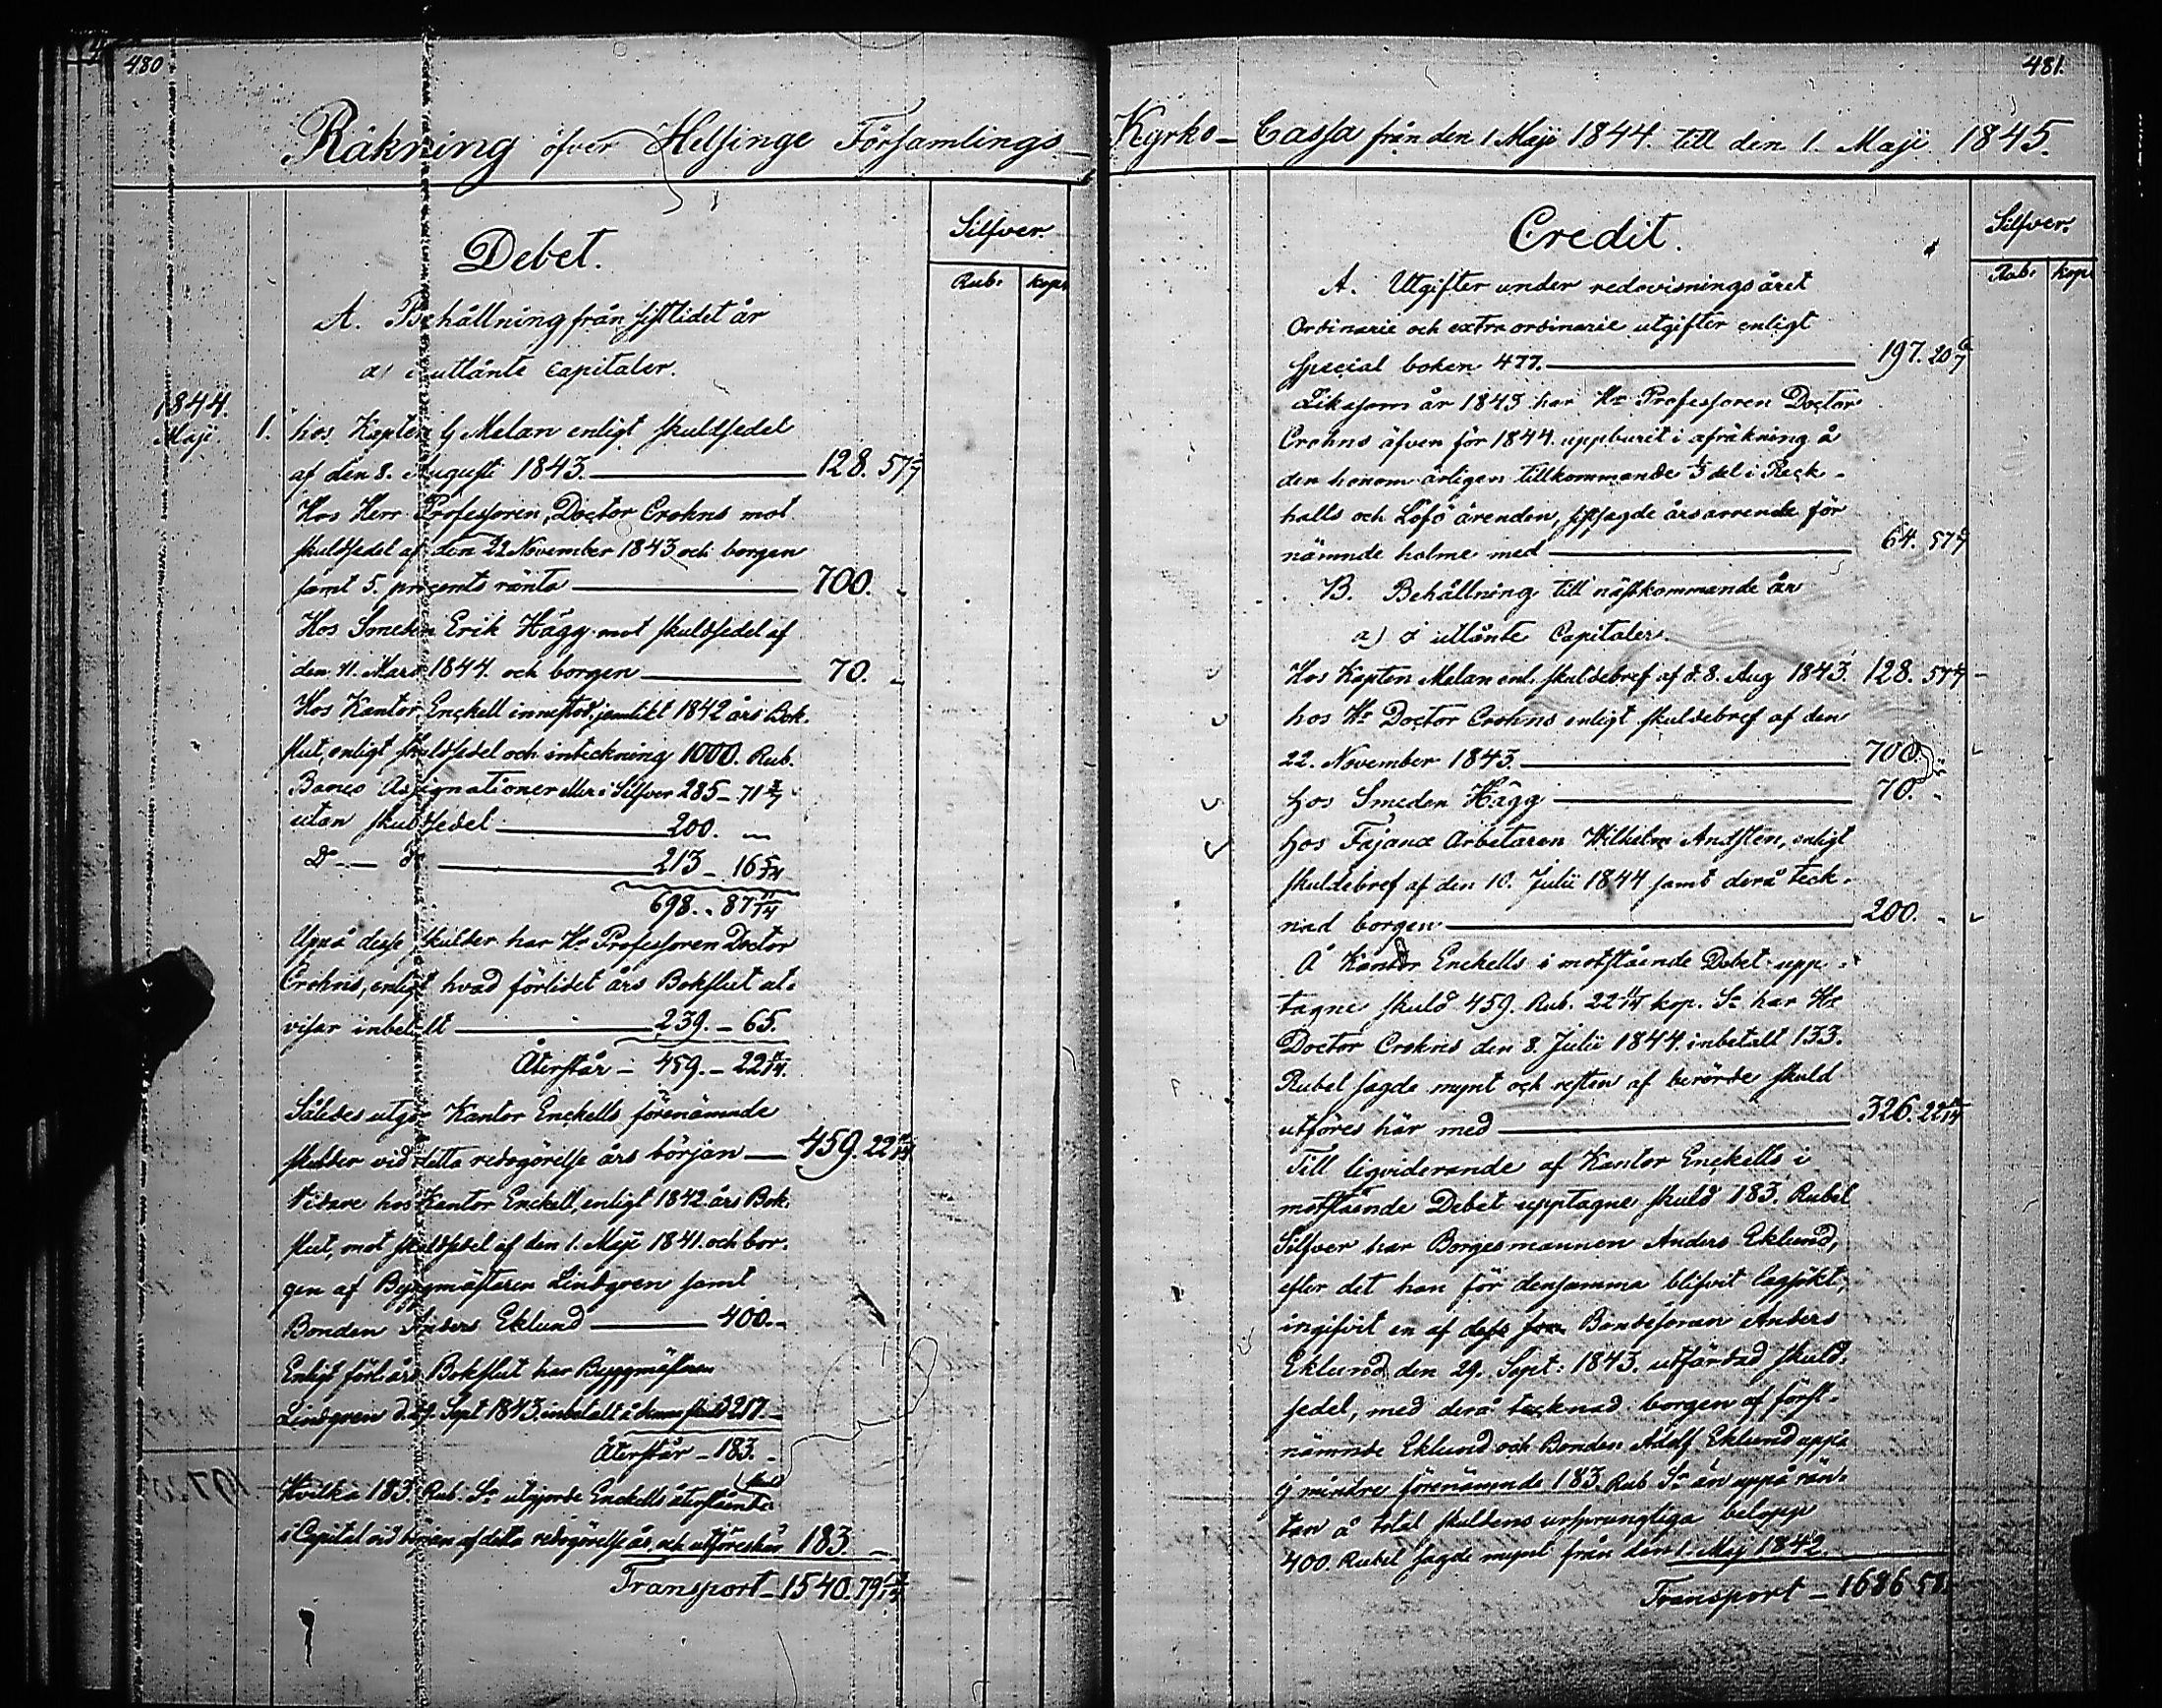 480
Räkning öfver Helsinge Församlings-
Debet.
Silfver.
Rub. kop.
A. Behållning från sistlidet år
a) i utlånte capitaler.
1844.
Maji. 1. hos Kapten G Melan enligt skuldsedel
af den 8. Augusti 1843. 128. 57 1/7
Hos Herr Professoren, Doctor Crohns mot
skuldsedel af den 22 November 1843 och borgen
samt 5. procents ränta 700. -
Hos Smeden Erik Hägg mot skuldsedel af
den 11. Mars 1844. och borgen 70. -
Hos Kantor Enckell innestod, jemlikt 1842 års Bok-
slut, enligt skuldsedel och inteckning 1000. Rub.
Banco Assignationer eller i Silfver 285 - 71 3/7
utan skuldsedel 200. -
Do - do 213 - 16 5/14
698. - 87 11/14
Uppå desse skulder har Hr Professoren Doctor
Crohns, enligt hvad förlidet års Bokslut ut-
visar inbetalt 239. - 65.
Återstår - 459. - 22 11/14.
Således utgör Kantor Enckells förenämnde
skulder vid detta redogörelse års början 459. 22 11/14
Vidare hos Kantor Enckell, enligt 1842 års Bok-
slut, mot skuldsedel af den 1. Maji 1841. och bor-
gen af Byggmästaren Lindgren samt
Bonden Anders Eklund 400. -
Enligt förl. års Bokslut har Byggmästaren
Lindgren d. 29. Sept 1843. inbetalt å denna skuld 217. -
Återstår - 183. -
Hvilka 183. Rub. Sr utgjorde Enckells återstånde
i Capital vid början af detta redogörelse år, och utföres här 183. -
Transport - 1540. 79
481.
Kyrko-Cassa från den 1 Maji 1844. till den 1. Maji 1845.
Credit.
Silfver.
Rub. kop.
A. Utgifter under redovisningsåret
Ordinarie och extra ordinarie utgifter enligt
special boken 477. 197. 20 6/7
Liksom år 1843 har Hr Professoren Doctor
Crohns äfven för 1844. uppburit i afräkning å
den honom årligen tillkommande 1/3 del i Räck-
halls och Löfö ärenden, sistsagde års arrende för
nämnde holme med 64. 57 1/7
B. Behållning till nästkommande år
a) i utlånte Capitaler.
Hos Kapten Melan enl. skuldebref af d. 8. Aug 1843. 128. 57 1/7 -
hos Hr Doctor Crohns enligt skuldebref af den
22. November 1843. 700. -
hos Smeden Hägg 70. -
hos Fajance Arbetaren Wilhelm Andsten, enligt
skuldebref af den 10. Julii 1844 samt derå teck-
nad borgen 200. -
Å Kantor Enckells i motstående Debet upp-
tagne skuld 459. Rub. 22 11/14 kop. Sr har Hr
Doctor Crohns den 8. Julii 1844. inbetalt 133.
Rubel sagde mynt och resten af berörde skuld
utföres här med 326. 22 11/14
Till liqviderande af Kantor Enckells i
motstående Debet upptagne skuld 183. Rubel
Silfver har Borgesmannen Anders Eklund,
efter det han för densamma blifvit lagsökt,
ingifvit en af dess son Bondesonen Anders
Eklund den 29. Sept: 1843. utfärdad skuld-
sedel, med derå tecknad borgen af först-
nämnde Eklund och Bonden Adolf Eklund uppå
ej mindre förenämnde 183. Rub Sr än uppå rän-
tan å total skuldens ursprungliga belopp
400. Rubel sagde mynt från den 1. Maj 1842.
Transport - 1686 58.